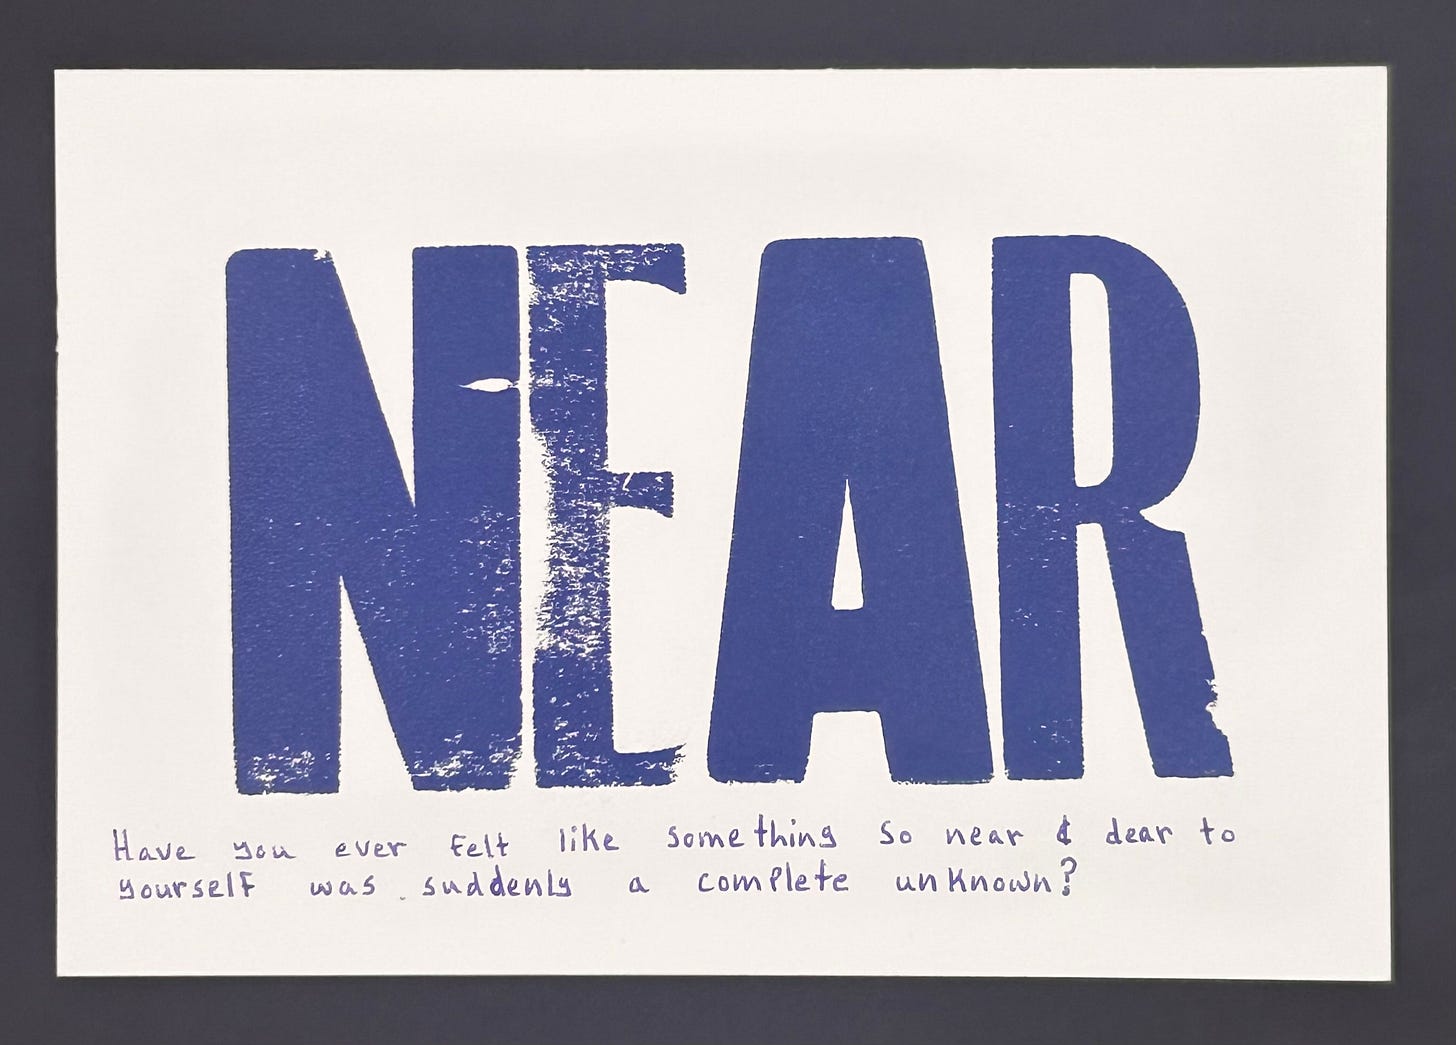 NEAR
Have you ever felt like something so near & dear to
yourself was suddenly a complete unknown?